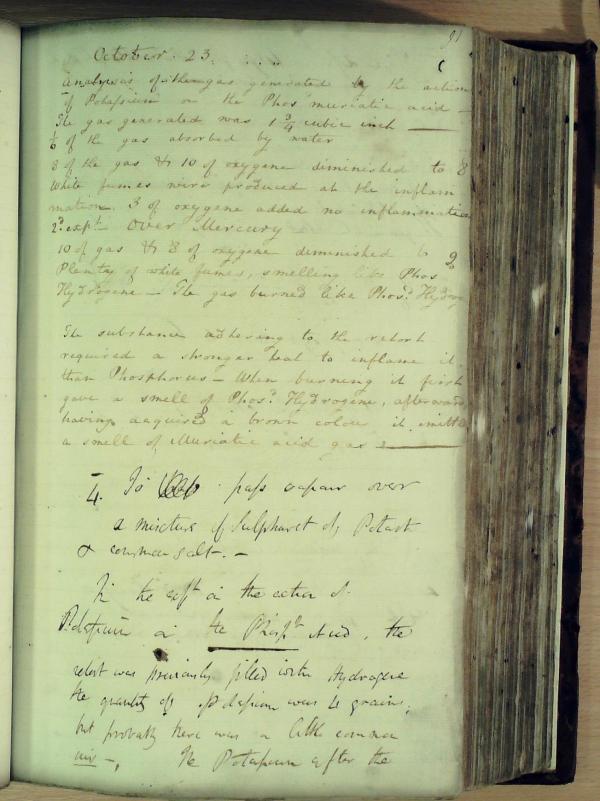 91
October. 23.
Analysis of the gas generated by the action
of Potassium on the Phos muriatic acid —
The gas generated was 1 3/4 cubic inch —
1/6 of the gas absorbed by water
8 of the gas & 10 of oxygene diminished to 8
White fumes were produced at the inflam
mation. 3 of oxygene added no inflammation
2.d exp.t Over Mercury
10 of gas & 8 of oxygene diminished to 9
Plenty of white fumes, smelling like Phos
Hydrogene — The gas burned like Phos.d Hydrog
The substance adhering to the retort
required a stronger heat to inflame it
than Phosphorus — When burning it first
gave a smell of Phos.d Hydrogene, afterward
having acquired a brown colour it emitted
a smell of Muriatic acid gas —
4. To pass vapour over
a mixture of Sulphuret of Potash
& common salt. —
In the exp.t on the action of
Potassium on the Phosp.c Acid, the
retort was previously filled with Hydrogene
the quantity of Potassium was 4 grains,
but probably there was a little common
air —, The Potassium after the